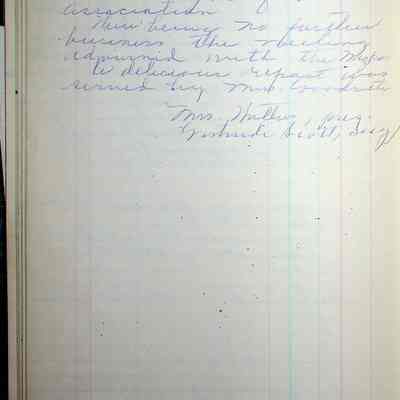 association
There being no further
business the meeting
adjourned with the Mizpah
A delicious repast was
served by Mrs. Goodrich
Mrs. , pres.
Gertrude Scott, secy